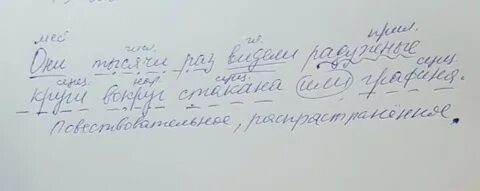 мес числ. гл. прил.
Они тысячи раз видели радужные
сущ. нар. сущ. сущ.
круги вокруг стакана или графина.
Повествовательное, распространённое.